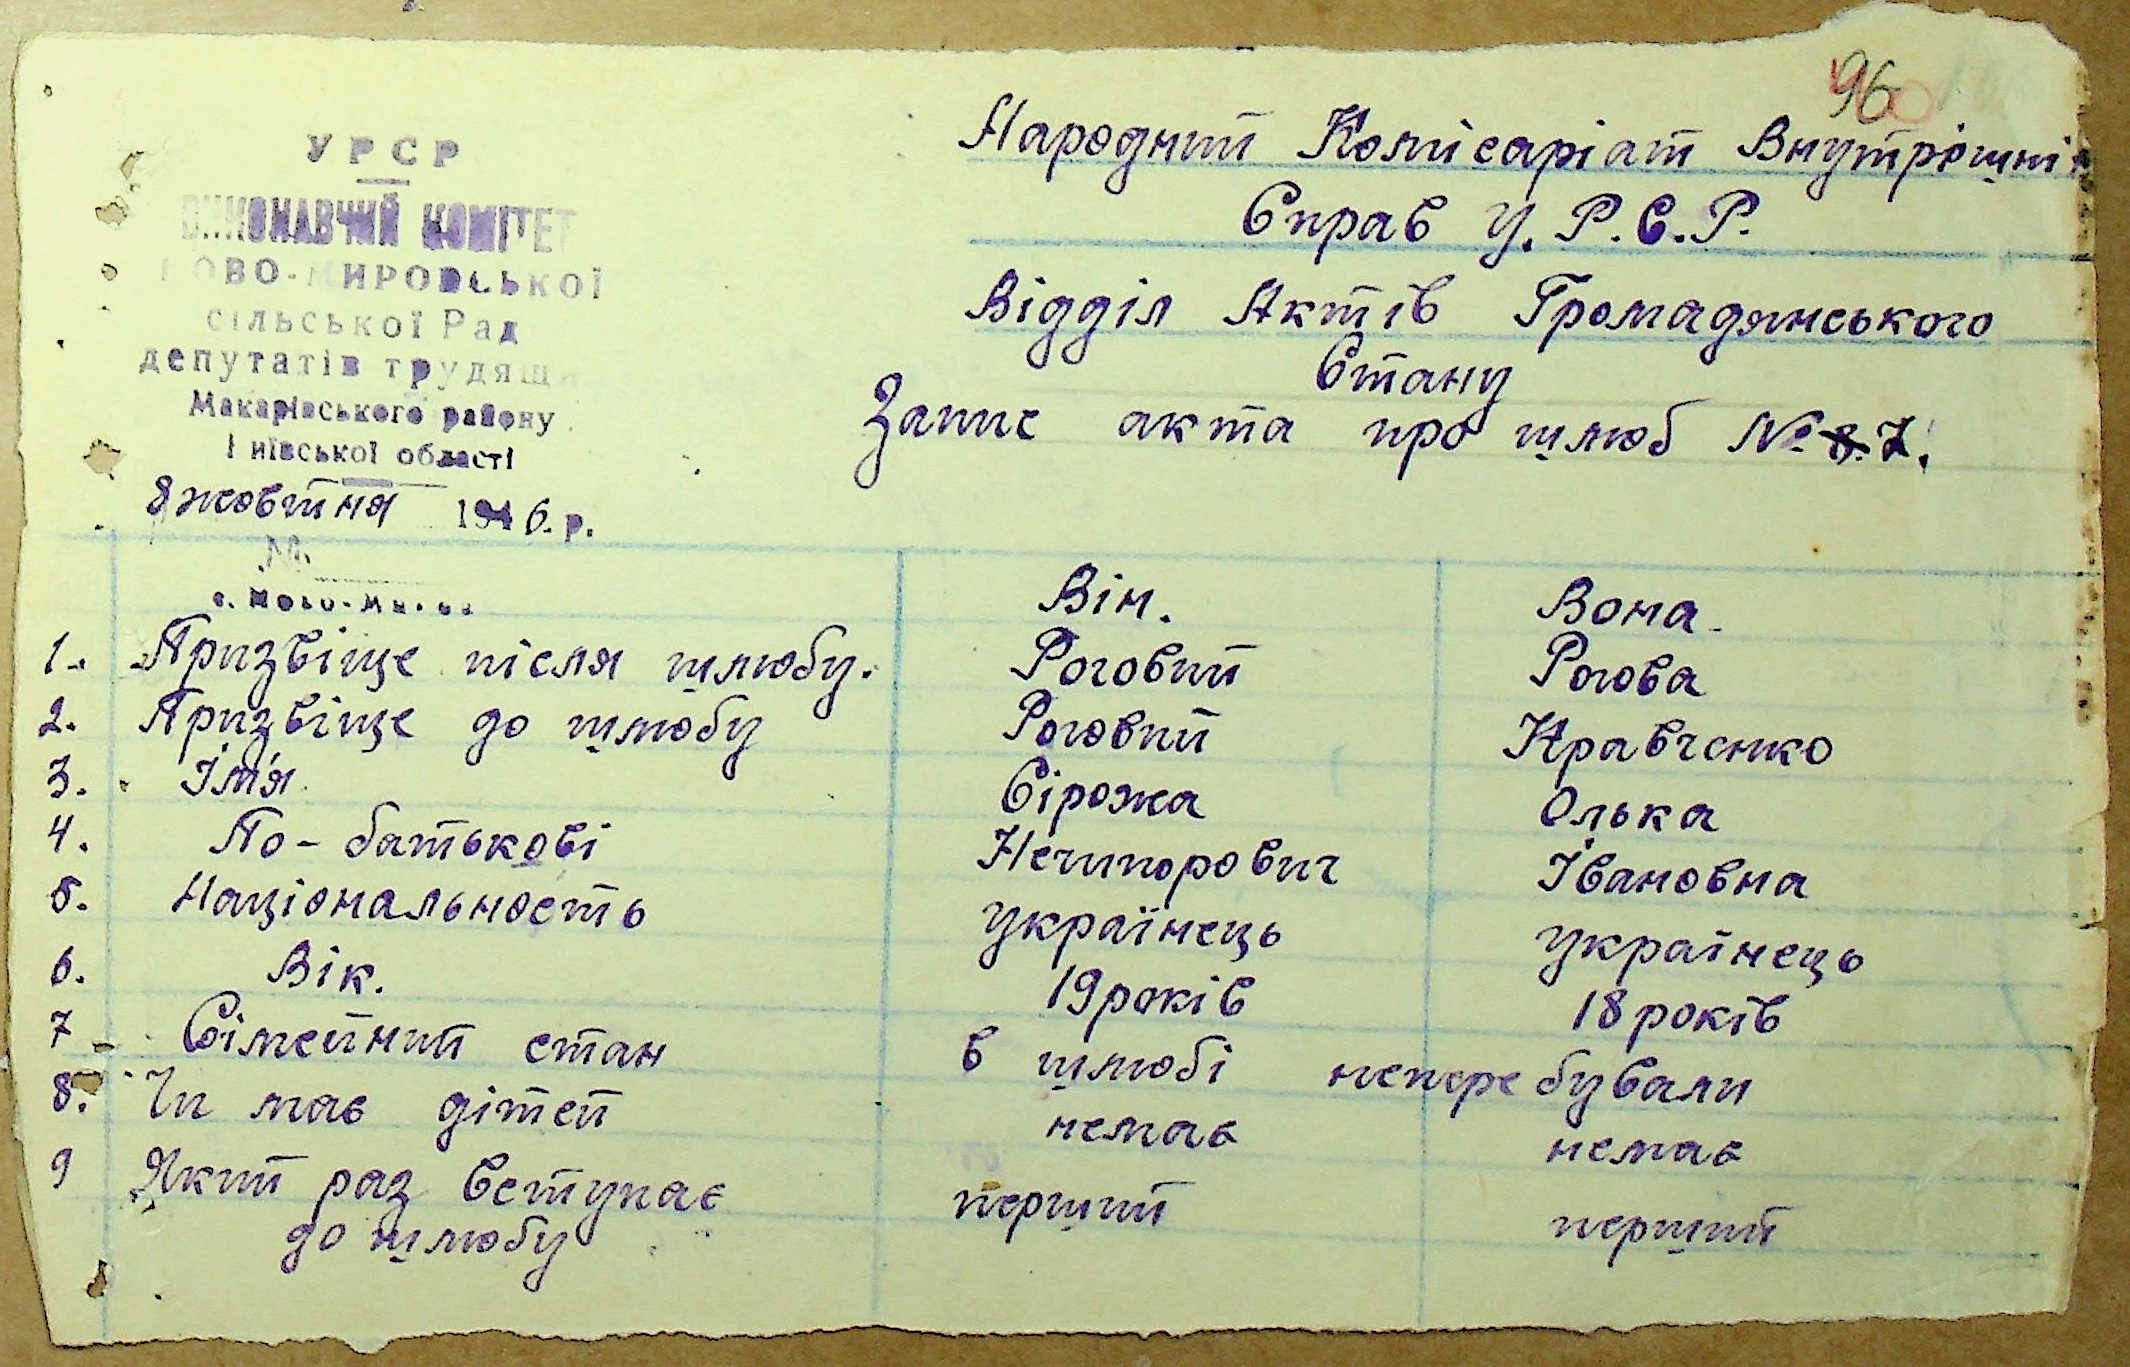 96
УРСР
ВИКОНАВЧИЙ КОМІТЕТ
НОВО-МИРОВСЬКОЇ
сільської Рад
депутатів трудящ
Макарівського району
Київської області
8 жовтня 1946. р.
с. Ново-
Народний Комісаріат Внутрішніх
Справ У.Р.С.Р.
Відділ Актів Громадянського
Стану
Запис акта про шлюб № 8. 7.
Він. Вона
1. Призвіще після шлюбу. Роговий Рогова
2. Призвіще до шлюбу Роговий Кравченко
3. Ім'я Сірожа Олька
4. По-батькові Нечипорович Івановна
5. Національность українець українець
6. Вік. 19 років 18 років
7 Сімейний стан в шлюбі непере бували
8. Чи має дітей немає немає
9 Який раз вступає перший перший
до шлюбу